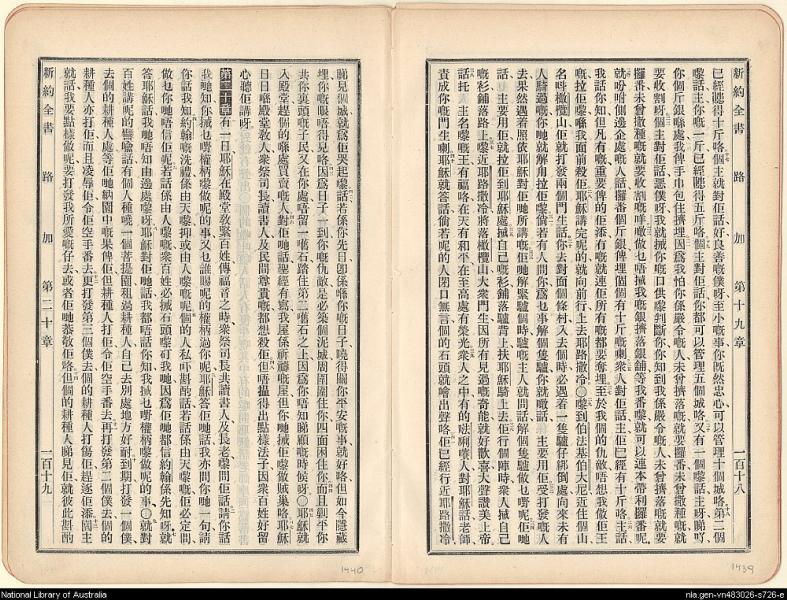 新約全書 路加 第十九章 一百十八
已經賺得十斤咯個主就對佢話好良善嘅僕呀至小嘅事你既然忠心可以管理十個城咯第二個
嚟話主你嘅一斤已經賺得五斤咯個主對佢話你都可以管理五個城咯又有一個嚟話主呀睇吓
你個斤銀喺處我俾手巾包住擠埋因爲我怕你係嚴令嘅人未曾擠落嘅就要攞番未曾撒種嘅就
要收割呀個主對佢話惡僕呀我就㨢你嘅口供嚟判斷你你知到我係嚴令嘅人未曾擠落嘅就要
攞番未曾撒種嘅就要收割嘅咩噉做乜唔㨢我嘅銀擠落銀舖等我番嚟就可以連本帶利攞番呢
就吩咐側邊企處嘅人話攞番個斤銀俾埋個有十斤嘅喇衆人對佢話主佢已經有十斤咯主話
我話你知但凡有嘅重要俾佢添冇嘅就連佢所有嘅都要奪埋至於我個的仇敵唔想我做佢王
嘅拉佢嚟喺我面前殺佢耶穌講完呢的就向前行上去耶路撒冷○嚟到伯法基伯大尼近住個山
名呌橄欖山佢就打發兩個門生話你去對面個條村入去個時必遇着一隻驢仔綁倒處向來未有
人騎過嘅你哋就解甩拉佢嚟倘若有人問你爲乜事解個隻驢你就噉話主要用佢受打發嘅人
去果然遇着照依耶穌對佢哋所講嘅佢哋解緊驢個時驢嘅主人就問話解個隻驢做乜嘢呢佢哋
話主要用佢就拉佢到耶穌處㨢自己嘅衫鋪落驢背上扶耶穌騎上去佢行個陣時衆人㨢自己
嘅衫鋪落路上嚟近耶路撒冷啱落橄欖山大衆門生因所有見過嘅奇能就好歡喜大聲讚美上帝
話托主名嚟嘅王有福咯在天有和平在至高處有榮光衆人之中有的人對耶穌話老師
責成你嘅門生喇耶穌就答話倘若呢的人閉口無言個的石頭就噲出聲咯佢已經行近耶路撒冷
1439
睇見個城就爲佢哭起嚟話若係你先日卽係喺你嘅日子曉得關你平安嘅事就好咯但如今隱藏
埋你嘅眼唔得見咯因爲日子一到你嘅仇敵是必築個泥城周圍圍住你四面困住你而且剿平你
共你裏頭嘅子民又在你處唔留一嚿石踏住第二嚿石之上因爲你唔知睇顧嘅時候呀○耶穌
入殿堂趕個的喺處買賣嘅人對佢哋話聖經有寫我屋係祈禱嘅屋但你哋㨢佢嚟做賊巢咯耶穌
日日喺殿堂教人衆祭司長讀書人及民間尊貴嘅都想殺佢但唔搵得出點樣法子因衆百姓好留
心聽佢講呀
第二十章有一日耶穌在殿堂教緊百姓傳福音之時衆祭司長共讀書人及長老嚟問佢話請你話
我哋知你㨢乜嘢權柄嚟做呢的事又乜誰賜呢的權柄過你呢耶穌答佢哋話我亦問你哋一句請
你話我知約翰嘅洗禮係由天嚟抑或由人嚟呢呢個的人私吓斟酌話若話係由天嚟嘅佢必定問
做乜你哋唔信佢呢若話係由人嚟嘅衆百姓必㨢石頭嚟矴我哋因爲佢哋都信約翰係先知呀就
答耶穌話我哋唔知由邊處嚟呀耶穌對佢哋話我都唔話你知我㨢乜嘢權柄嚟做呢的事○就對
百姓講呢的譬喻話有個人種嘵一個菩提園租過耕種人自己去別處地方好耐到期打發一個僕
去個的耕種人處等佢哋納園中嘅果俾佢但耕種人打佢令佢空手番去再打發第二個僕去個的
耕種人亦打佢而且凌辱佢令佢空手番去更打發第三個僕去個的耕種人打傷佢趕逐佢添園主
就話我要點樣做呢要打發我所愛嘅仔去或者佢哋恭敬佢咯但個的耕種人睇見佢就彼此斟酌
新約全書 路加 第二十章 一百十九
1440
National Library of Australia
nla.gen-vn483026-s726-e